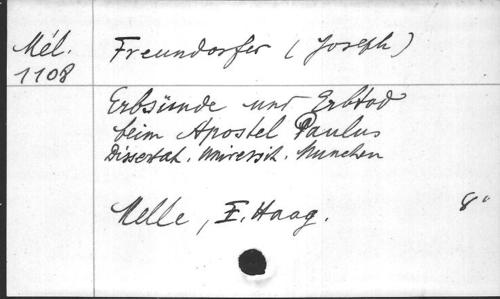 Mél.
1108
Freundorfer (Joseph)
Erbsünde und Erbtod
beim Apostel Paulus
Dissertat. Universit. Munchen
Melle, F. Haag.
8°